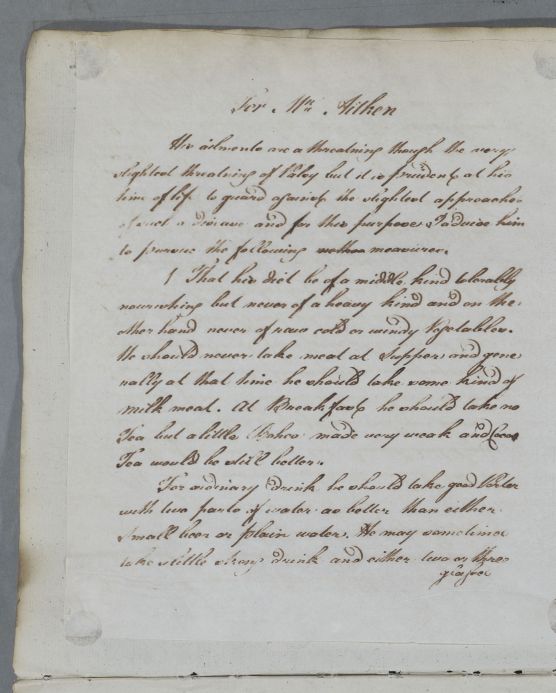 For Mr. Aitken
His ailments are a threatning though the very
slightest threatning of Palsy but it is prudent at his
time of life to guard against the slightest approaches
of such a disease and for this purpose I advise him
to pursue the following measures.
1 That his diet be of a middle kind tolerably
nourishing but never of a heavy kind and on the
other hand never of raw cold or windy Vegetables.
He should never take meat at Supper and gene
rally at that time he should take some kind of
milk meat. At Breakfast he should take no
Tea but a little made very weak and
Tea would be still better.
For ordinary drink he should take good
with two parts of water as better than either
Small beer or plain water. He may sometimes
take a little strong drink and either two or three
glasses